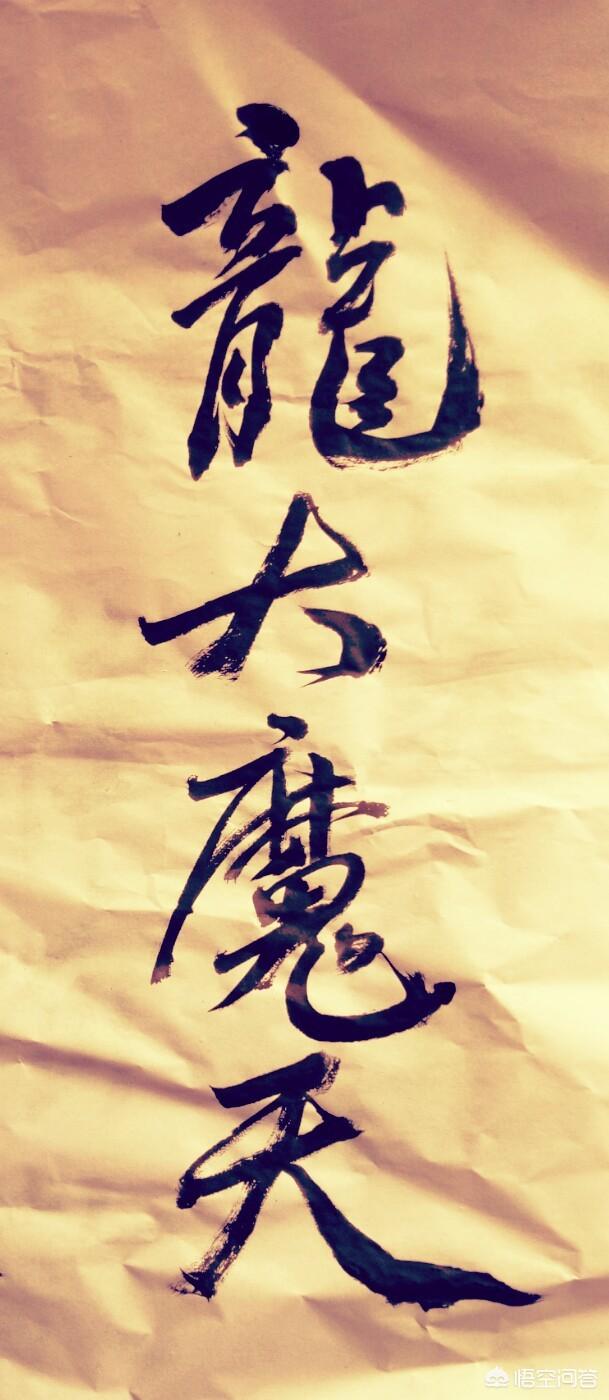 龍大魔天
悟空问答